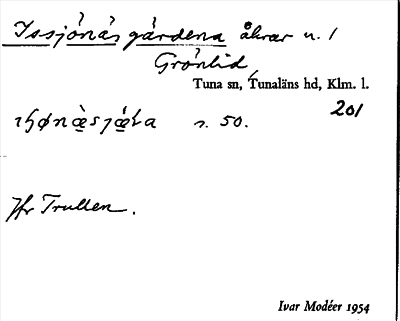 Issjönäsgärdena åkrar u. 1
Grönlid,
Tuna sn, Tunaläns hd, Klm. l.
201
s. 50.
Jfr Trullen.
Ivar Modéer 1954